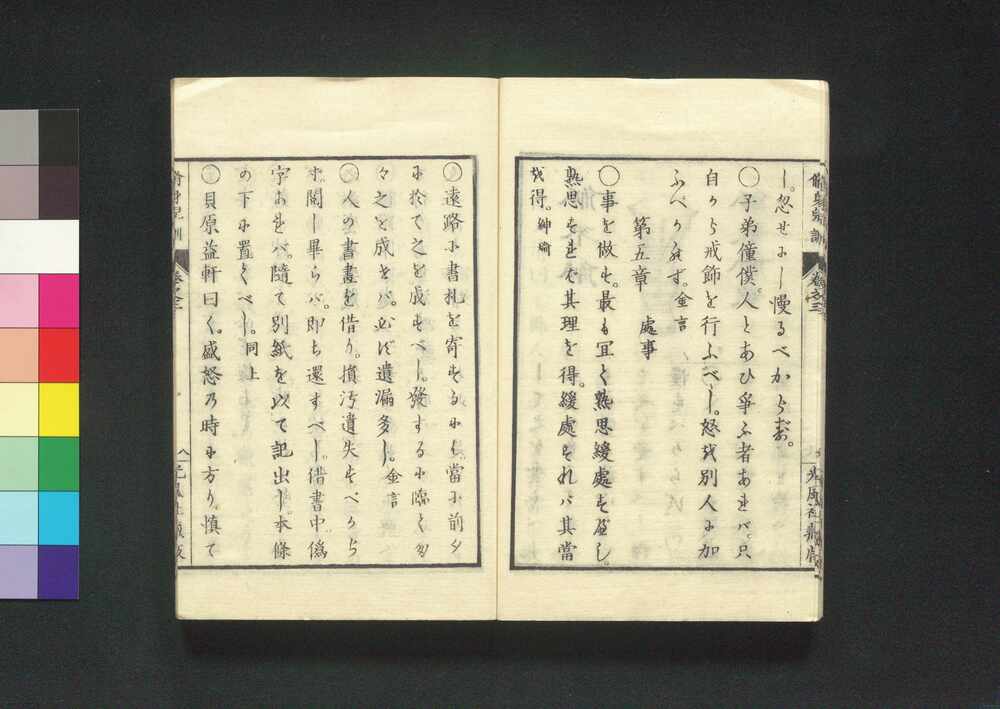 し。忽せにし慢るべからず。
〇子弟僮僕。人とあひ爭ふ者あれバ。只
自から戒飾を行ふべし。怒を別人に加
ふべからず。金言
第五章 處事
〇事を做す。最も宜く熟思緩處すべし。
熟思すれバ其理を得。緩處すれバ其當
を得。紳瑜
〇遠路に書札を寄するにハ。當に前夕
に於て之を成すべし。發するに臨て匆
々之を成せバ。必ず遺漏多し。金言
〇人の書畫を借り。損汚遺失すべから
ず。閲し畢らバ。即ち還すべし。借書中。僞
字あれバ。隨て別紙を以て記出し。本條
の下に置くべし。同上
〇貝原益軒曰く。盛怒の時に方り。愼て